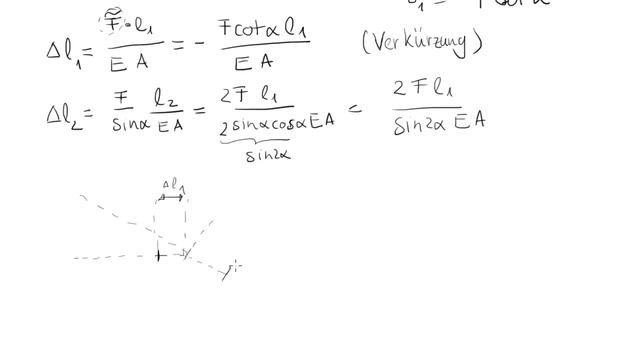 Δl₁ = F̃·l₁ / EA = - F cotα l₁ / EA (Verkürzung)
Δl₂ = F / sinα l₂ / EA = 2F l₁ / 2sinαcosα EA = 2Fl₁ / sin2α EA
sin2α
Δl₁